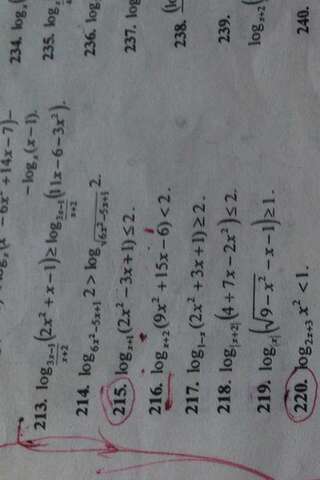 − 6x² + 14x − 7) −
− logₓ(x − 1).
213. log_{(3x−1)/(x+2)}(2x² + x − 1) ≥ log_{(3x−1)/(x+2)}(11x − 6 − 3x²).
214. log_{6x²−5x+1} 2 > log_{√(6x²−5x+1)} 2.
215. log_{x+1}(2x² − 3x + 1) ≤ 2.
216. log_{x+2}(9x² + 15x − 6) < 2.
217. log_{1−x}(2x² + 3x + 1) ≥ 2.
218. log_{|x+2|}(4 + 7x − 2x²) ≤ 2.
219. log_{|x|}(√(9 − x²) − x − 1) ≥ 1.
220. log_{2x+3} x² < 1.
234. log
235. log
236. log
237. log
238.
239.
log_{x+2}(
240.